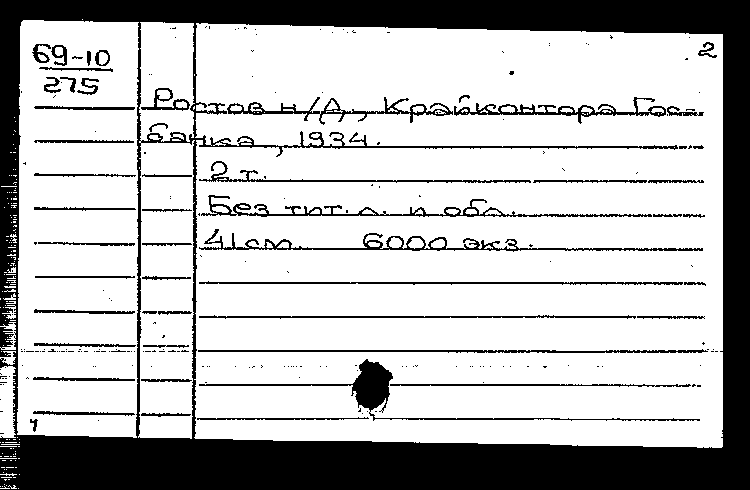 2
69-10
275
Ростов н/Д, Крайконтора Гос-
банка, 1934.
2 т.
Без тит. л. и обл.
41 см. 6000 экз.